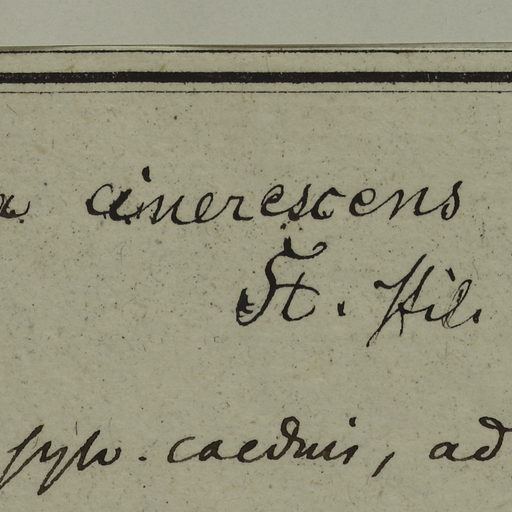 a cinerescens
St. Hil.
sylv. caeduis, ad